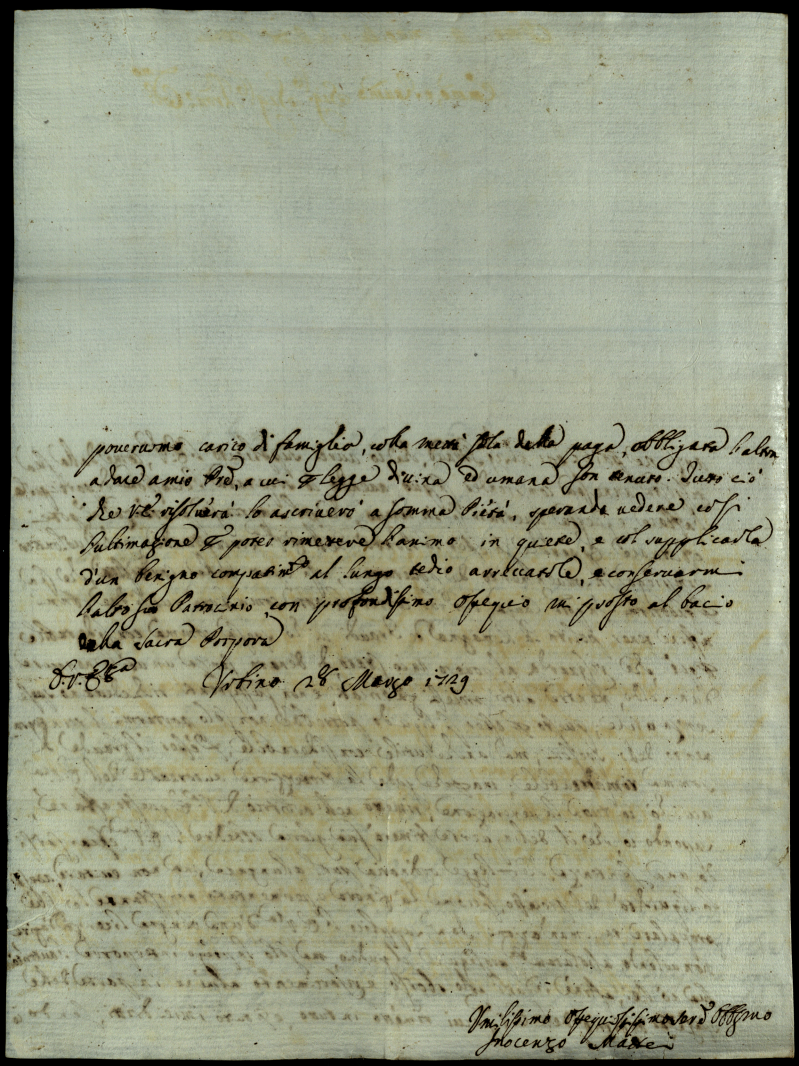 poverissimo carico di famiglia, colla metà sola della paga, obbligare l'altra
a dare a mio Pre, a cui per legge divina ed umana son tenuto. Tutto ciò
che V.E. risolverà lo ascriverò a somma Pietà, sperando vedere così
l'ultimazione per poter rimettere l'animo in quiete, e col supplicarla
d'un benigno compatimto al lungo tedio arreccatole, e conservarmi
l'alto suo Patrocinio con profondissimo ossequio mi prosto al bacio
della Sacra Porpora
D.V.Eza Urbino 28 Marzo 1729
Umilissimo Ossequiosissimo Serre Obblgmo
Inocenzo Mattei